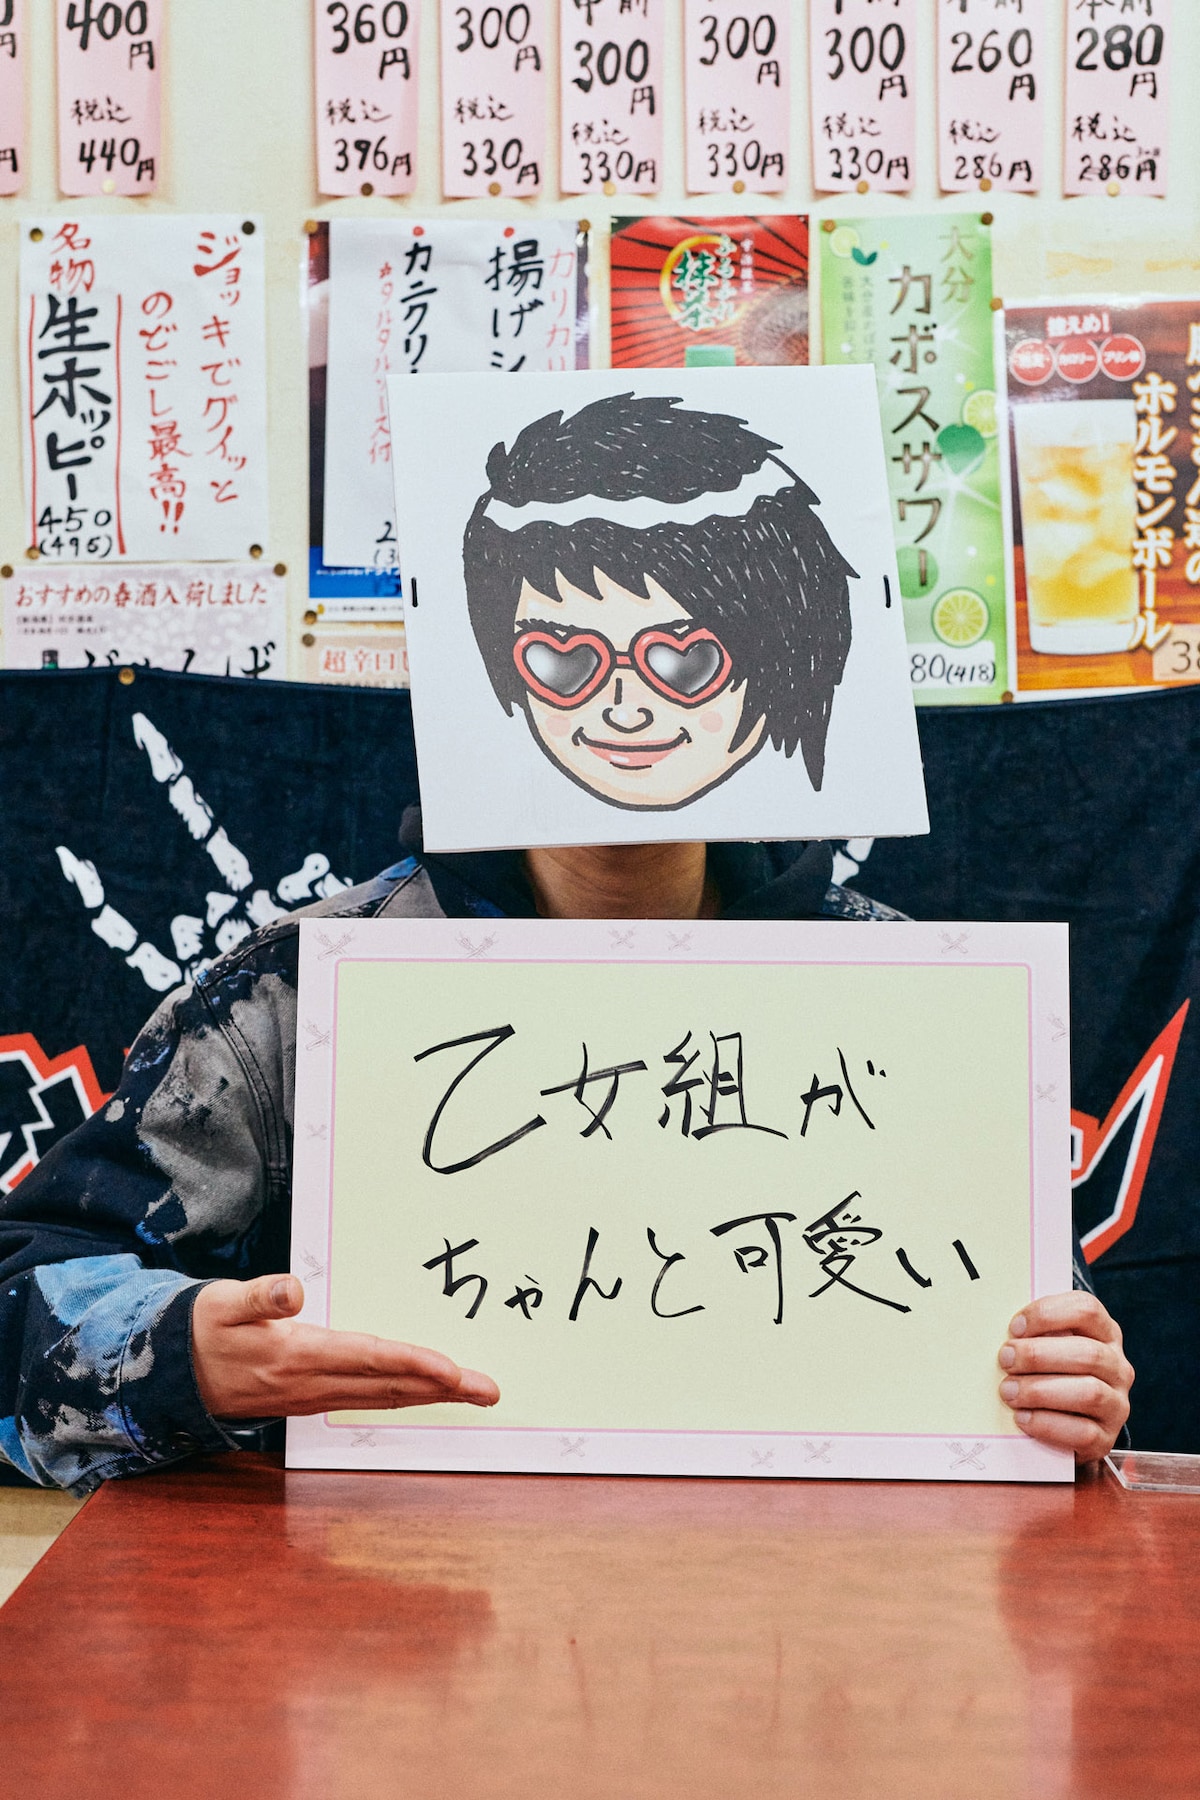 400円
税込
440円
360円
税込
396円
300円
税込
330円
300円
税込
330円
300円
税込
330円
300円
税込
330円
260円
税込
286円
280円
税込
286円
名物
生ホッピー
450
(495)
ジョッキでグイッと
のどごし最高!!
揚げシ
カニクリ
タルタルソース付
カリカリ
抹茶
大分
カボスサワー
80(418)
控えめ!
カロリー
プリン体
ホルモンボール
38
おすすめの春酒入荷しました
超辛口
乙女組が
ちゃんと可愛い